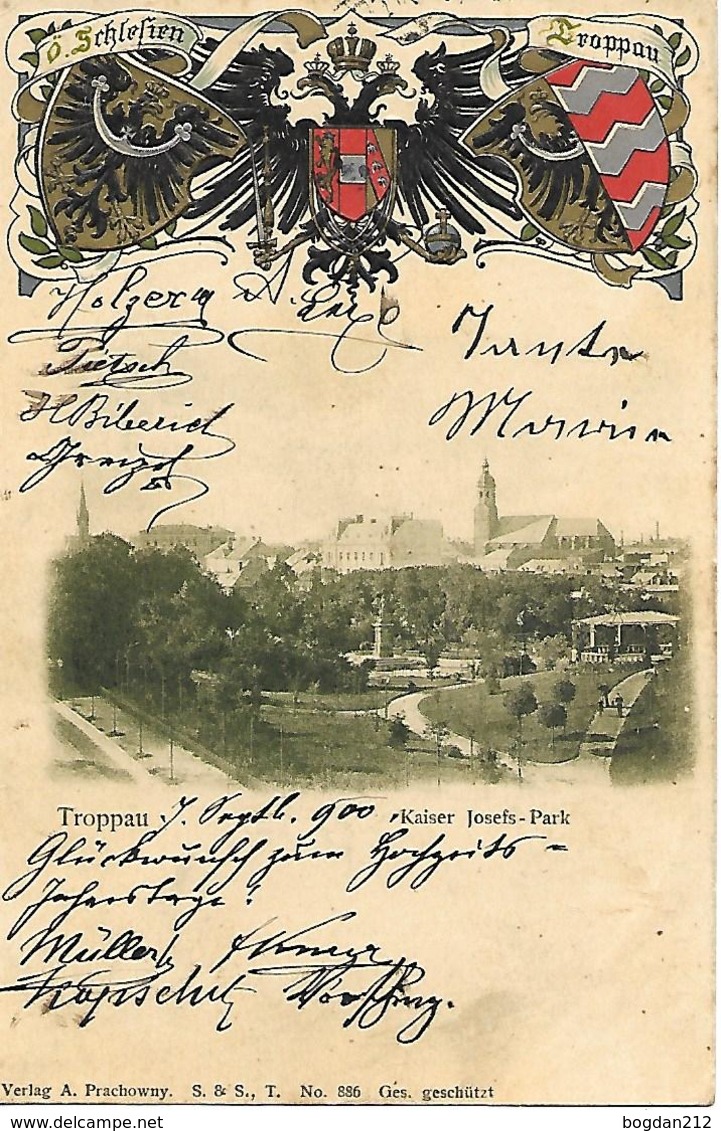 Ö. Schlesien
Troppau
Holzer A.
Tietsch
H Biberich
Tante
Marie
Troppau 7. Septb. 900 Kaiser Josefs-Park
Glückwunsch zum Hochzeits=
Jahrestage!
Müller
Verlag A. Prachowny. S. & S., T. No. 886 Ges. geschützt
bogdan212